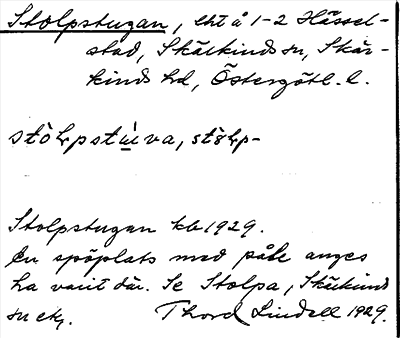 Stolpstugan, lht å 1-2 Hässel-
stad, Skärkinds sn, Skär-
kinds hd, Östergötl. l.
stòl̥pstù̵va, stöl̥p-
Stolpstugan kb 1929.
En spöplats med påle anges
ha varit där. Se Stolpa, Skärkinds
sn etc. Thord Lindell 1929.